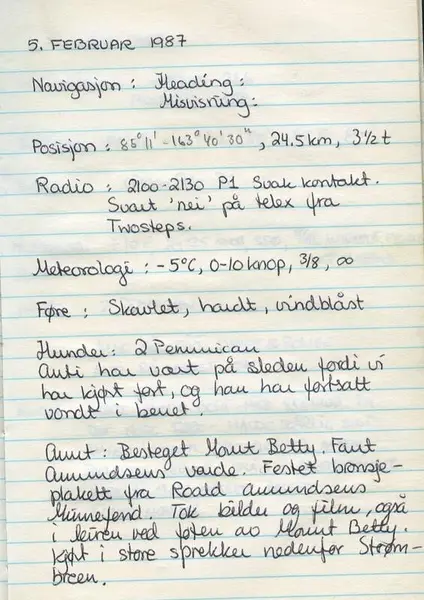 5. FEBRUAR 1987
Navigasjon : Heading :
Misvisning :
Posisjon : 85°11' - 163°40'30", 24.5 km, 3½ t
Radio : 2100-2130 P1 Svak kontakt.
Svart 'nei' på telex fra
Twosteps.
Meteorologi : -5°C, 0-10 knop, 3/8, ∞
Føre : Skavlet, hardt, vindblåst
Hunder : 2 Pemmican
Anti har vært på sleden fordi vi
har kjørt fort, og han har fortsatt
vondt i benet.
Annet : Besteget Mount Betty. Fant
Amundsens varde. Festet bronsje-
plakett fra Roald Amundsens
Minnefond. Tok bilder og film, også
i leiren ved foten av Mount Betty.
Kjørt i store sprekker nedenfor Strøm-
breen.